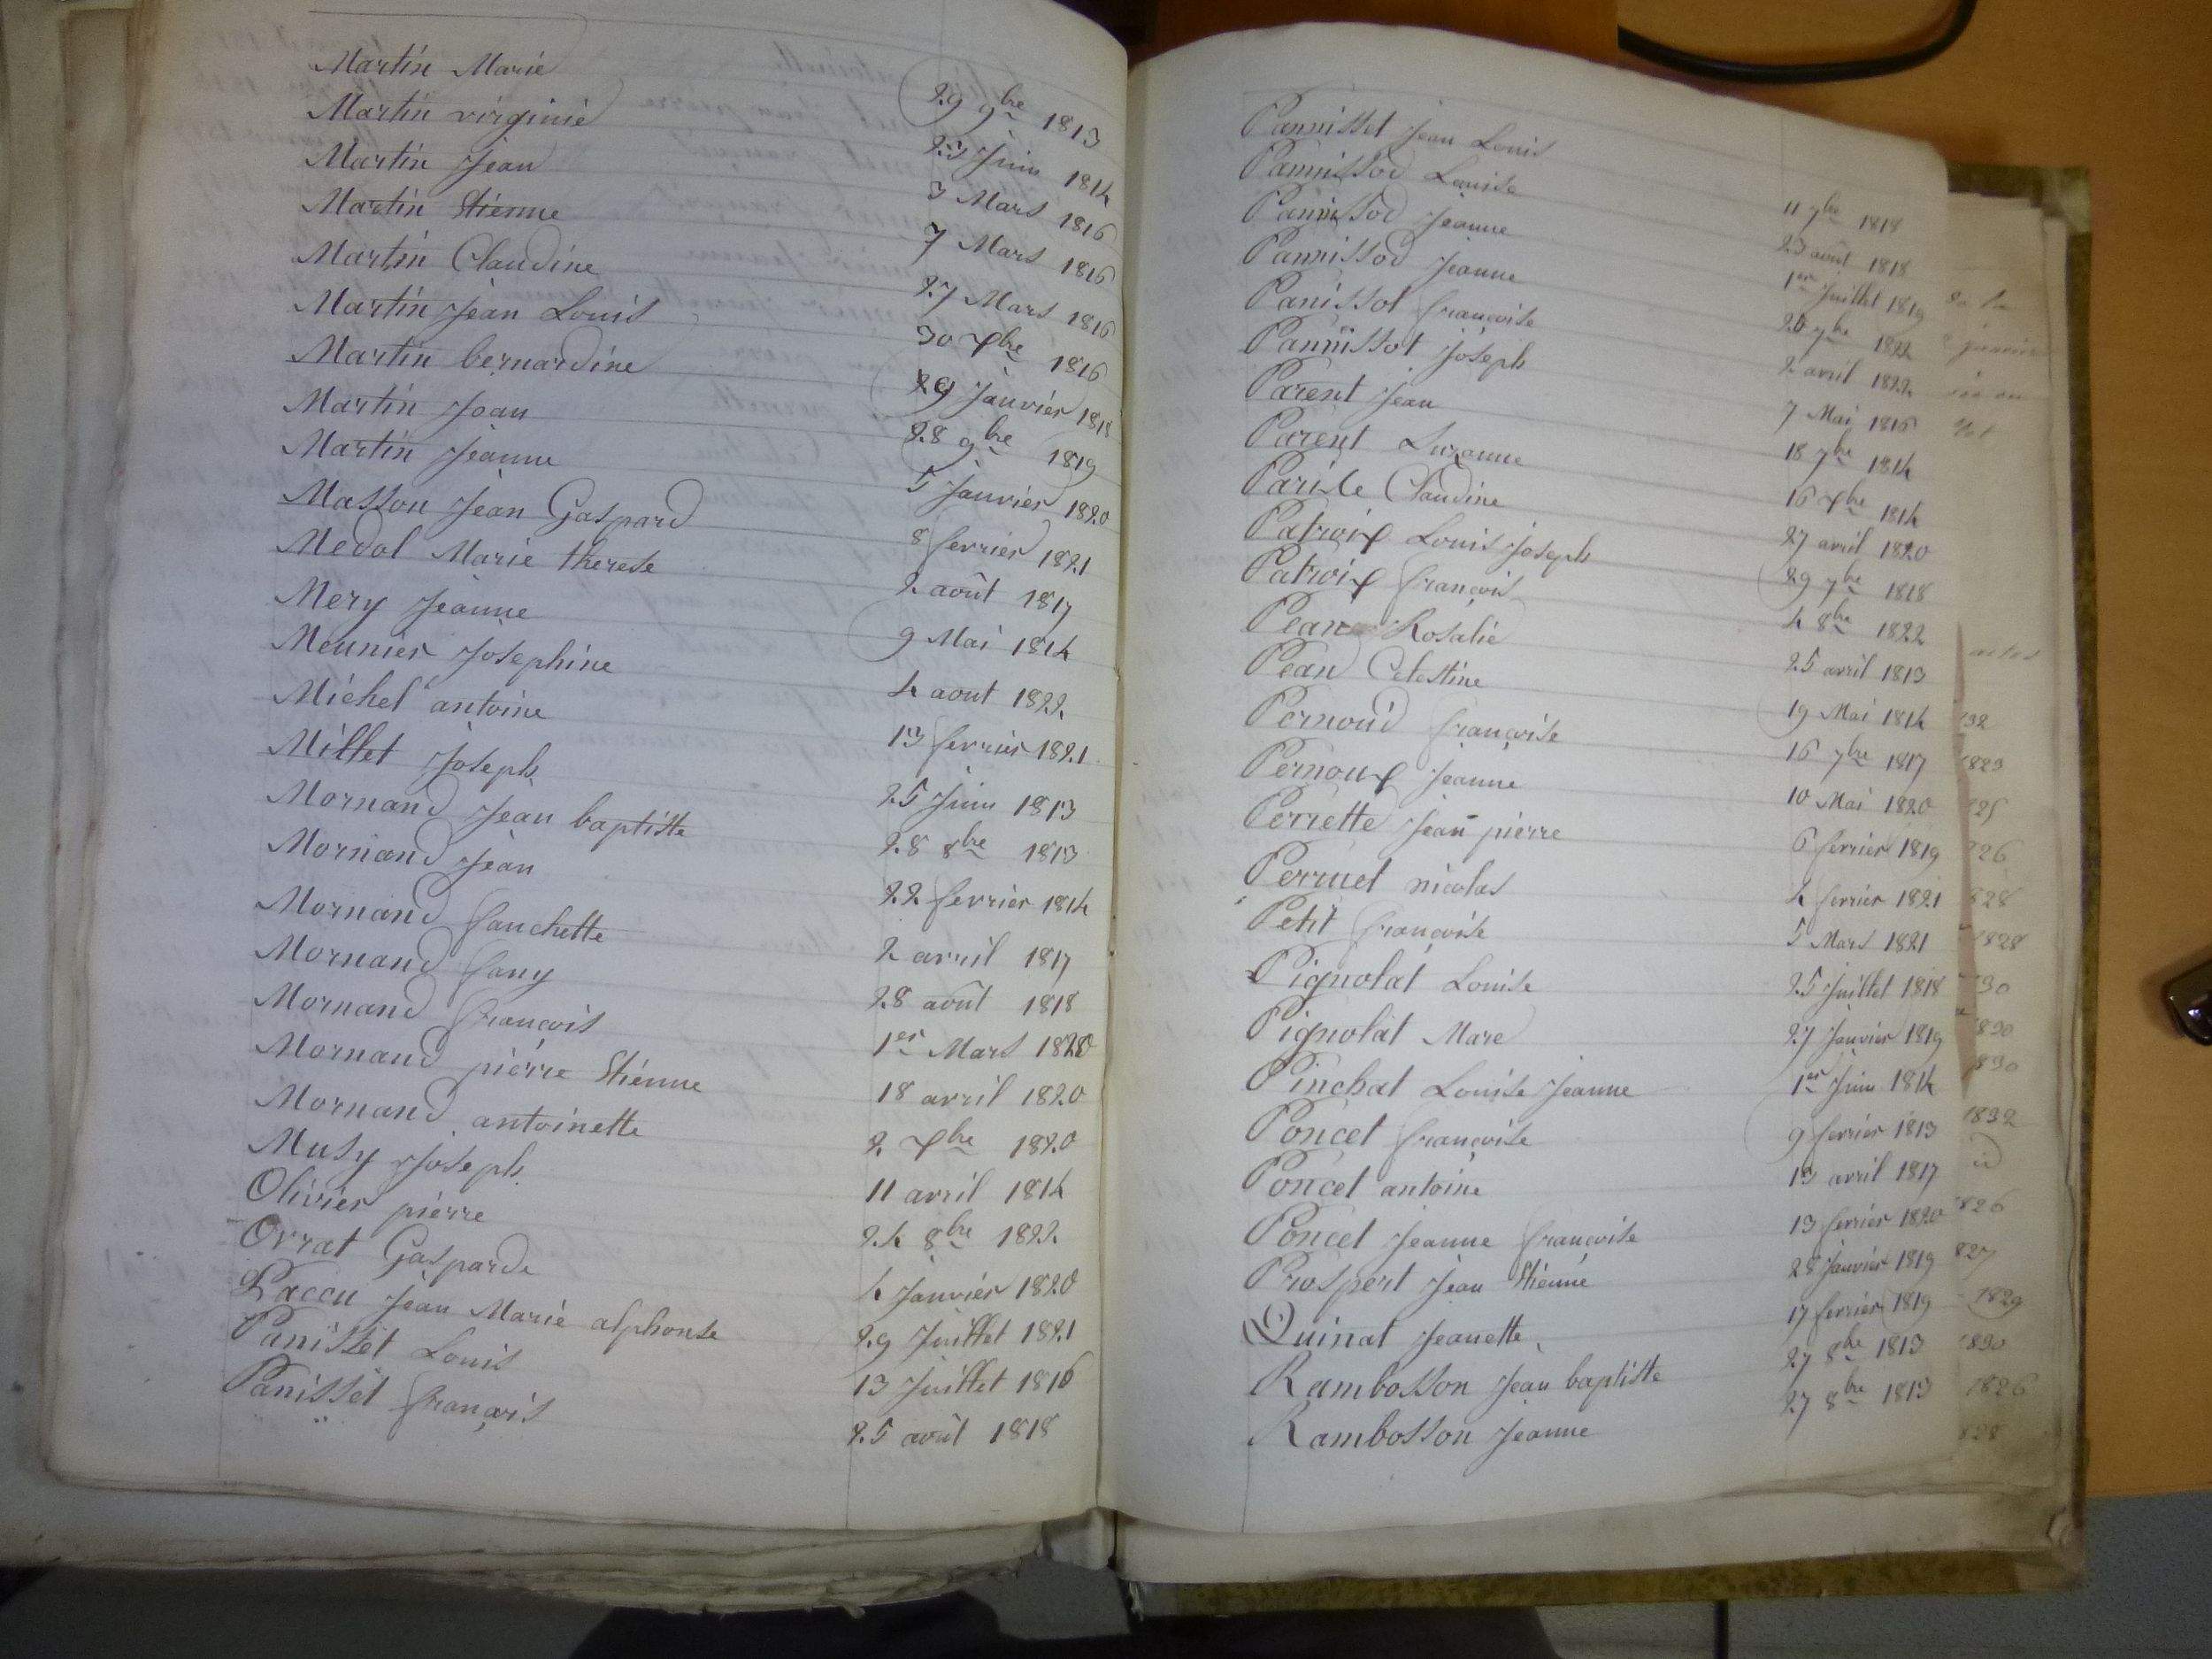 Martin Marie 29 9bre 1813
Martin virginie 23 Juin 1814
Martin Jean 3 Mars 1816
Martin Etienne 7 Mars 1816
Martin Claudine 27 Mars 1816
Martin Jean Louis 30 Xbre 1816
Martin bernardine 29 Janvier 1818
Martin Jean 28 9bre 1819
Martin Jeanne 5 Janvier 1820
Masson Jean Gaspard 8 fevrier 1821
Medol Marie therese 2 août 1817
Mery Jeanne 9 Mai 1814
Meunier Josephine 4 aout 1822
Michel antoine 13 fevrier 1821
Millet Joseph 25 Juin 1813
Mornand Jean baptiste 28 8bre 1813
Mornand Jean 22 fevrier 1814
Mornand fanchette 2 avril 1817
Mornand fany 28 août 1818
Mornand françois 1er Mars 1820
Mornand pierre Etienne 18 avril 1820
Mornand antoinette 2 Xbre 1820
Musy Joseph 11 avril 1814
Olivier pierre 24 8bre 1822
Ovrat Gasparde 4 Janvier 1820
Paccu Jean Marie alphonse 29 Juillet 1821
Panisset Louis 13 Juillet 1816
Panisset françois 25 août 1818
Pannisset Jean Louis 11 7bre 1818
Pannissod Louise 23 août 1818
Pannissod Jeanne 1er Juillet 1819
Pannissod Jeanne 26 7bre 1822
Panissot françoise 2 avril 1822
Pannissot joseph 7 Mai 1816
Parent Jean 18 7bre 1814
Parent Suzanne 16 Xbre 1814
Parise Claudine 27 avril 1820
Patroix Louis Joseph 29 7bre 1818
Patroix françois 4 8bre 1822
Pean Rosalie 25 avril 1813
Pean Celestine 19 Mai 1814
Pernoud françoise 16 7bre 1817
Pernoux Jeanne 10 Mai 1820
Perrette Jean pierre 6 fevrier 1819
Perruet nicolas 4 fevrier 1821
Petit françoise 5 Mars 1821
Pignolat Louise 25 Juillet 1818
Pignolat Marc 27 Janvier 1819
Pinchat Louise Jeanne 1er Juin 1814
Poncet françoise 9 fevrier 1813
Poncet antoine 13 avril 1817
Poncet Jeanne françoise 13 fevrier 1820
Prospert Jean Etienne 28 Janvier 1819
Quinat Jeanette 17 fevrier 1819
Rambosson Jean baptiste 27 8bre 1813
Rambosson Jeanne 27 8bre 1813